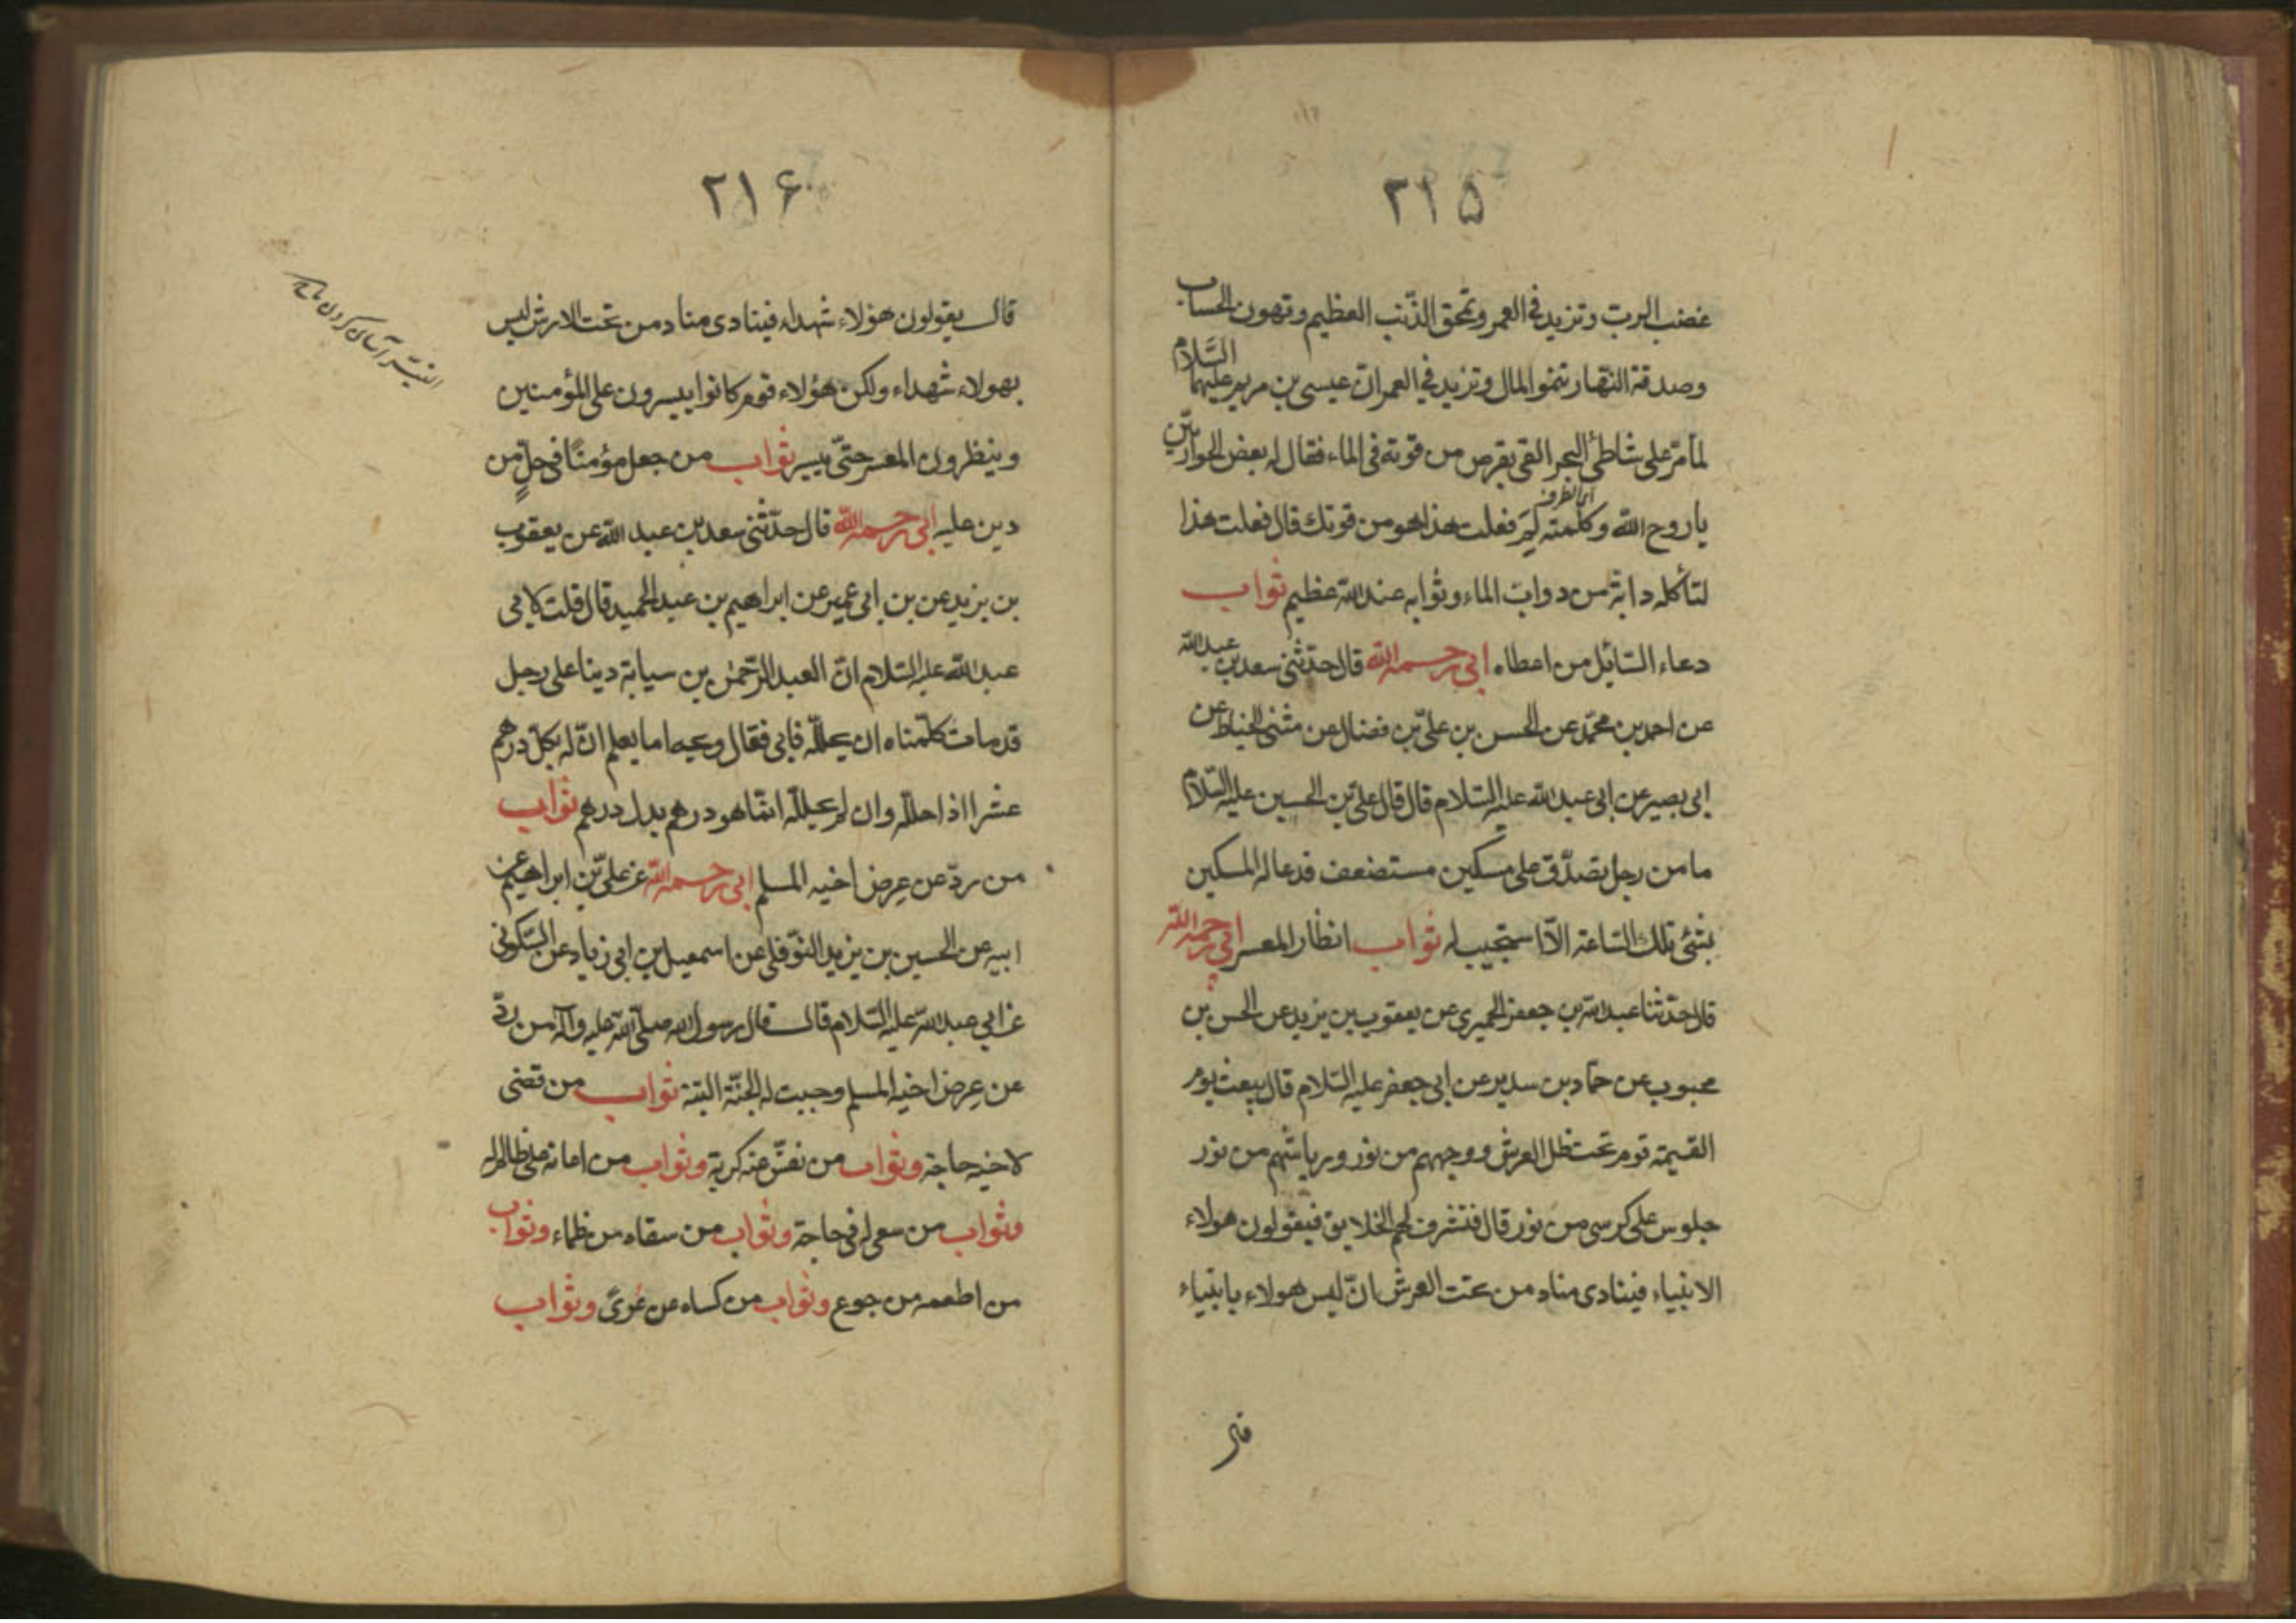 ۲۱۵
غضب الرب وتزيد في العمر وتمحق الذّنب العظيم وتهون الحساب
وصدقة النهار تنمو المال وتزيد في العمر انّ عيسى بن مريم عليهما السّلام
لمّا مرّ على شاطئ البحر القى بقرص من قوته في الماء فقال له بعض الحواريّين
يا روح اللّه وكلمته لِمَ فعلت هذا هو من قوتك قال فعلت هذا
لتأكله دابة من دواب الماء وثوابه عند اللّه عظيم ثواب
دعاء السّايل من اعطاه ابي رحمه اللّه قال حدّثني سعد بن عبد اللّه
عن احمد بن محمّد عن الحسن بن علىّ بن فضال عن مثنى الحناط عن
ابي بصير عن ابي عبد اللّه عليه السّلام قال قال علىّ بن الحسين عليه السّلام
ما من رجل تصدّق على مسكين مستضعف فدعا له المسكين
بشئ تلك السّاعة الاّ استجيب له ثواب انظار المعسر ابي رحمه اللّه
قال حدّثنا عبد اللّه بن جعفر الحميري عن يعقوب بن يزيد عن الحسن بن
محبوب عن حمّاد بن سدير عن ابي جعفر عليه السّلام قال يبعث يوم
القيمة قوم تحت ظل العرش ووجههم من نور ورياشهم من نور
جلوس على كرسى من نور قال فتشرف لهم الخلايق فيقولون هولاء
الانبياء فينادى مناد من تحت العرش انّ ليس هولاء بانبياء
۲۱۶
قال يقولون هؤلاء شهداء فينادى مناد من تحت العرش ليس
بهولاء شهداء ولكن هؤلاء قوم كانوا ييسرون على المؤمنين
وينظرون المعسر حتّى ييسر ثواب من جعل مؤمنًا في حلٍّ من
دين عليه ابي رحمه اللّه قال حدّثني سعد بن عبد اللّه عن يعقوب
بن يزيد عن بن ابي عمير عن ابراهيم بن عبد الحميد قال قلت لابي
عبد اللّه عليه السّلام انّ العبد الرّحمن بن سيابة دينا على رجل
قد مات كلّمناه ان يحلّله فابى فقال ويحه اما يعلم انّ له بكلّ درهم
عشرا اذا حلله وان لم يحلله انّما هو درهم بدل درهم ثواب
من ردّ عن عِرض اخيه المسلم ابي رحمه اللّه عن علىّ بن ابراهيم عن
ابيه عن الحسين بن يزيد النّوفلى عن اسمعيل بن ابي زياد عن السّكونى
عن ابي عبد اللّه عليه السّلام قال قال رسول اللّه صلّى اللّه عليه وآله من ردّ
عن عِرض اخيه المسلم وجبت له الجنّة البتة ثواب من قضى
لاخيه حاجة وثواب من نفّس عنه كربة وثواب من اعانه على ظالم له
وثواب من سعى له في حاجة وثواب من سقاه من ظماء وثواب
من اطعمه من جوع وثواب من كساه عن عُرىً وثواب